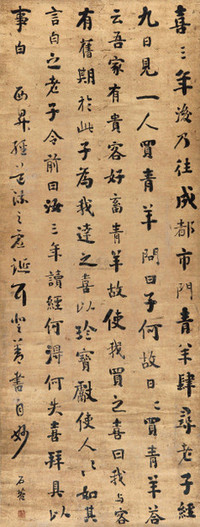 喜三年後乃往成都市門青羊肆尋老子經
九日見一人買青羊問曰子何故日日買青羊答
云吾家有貴客好畜青羊故使我買之喜曰我与客
有舊期於此子為我達之喜以珍寶嚴使人人如其
言白之老子令前曰汝三年讀經何得何失喜拜具以
事白 西昇經 之 誕耳 書自妙
石菴